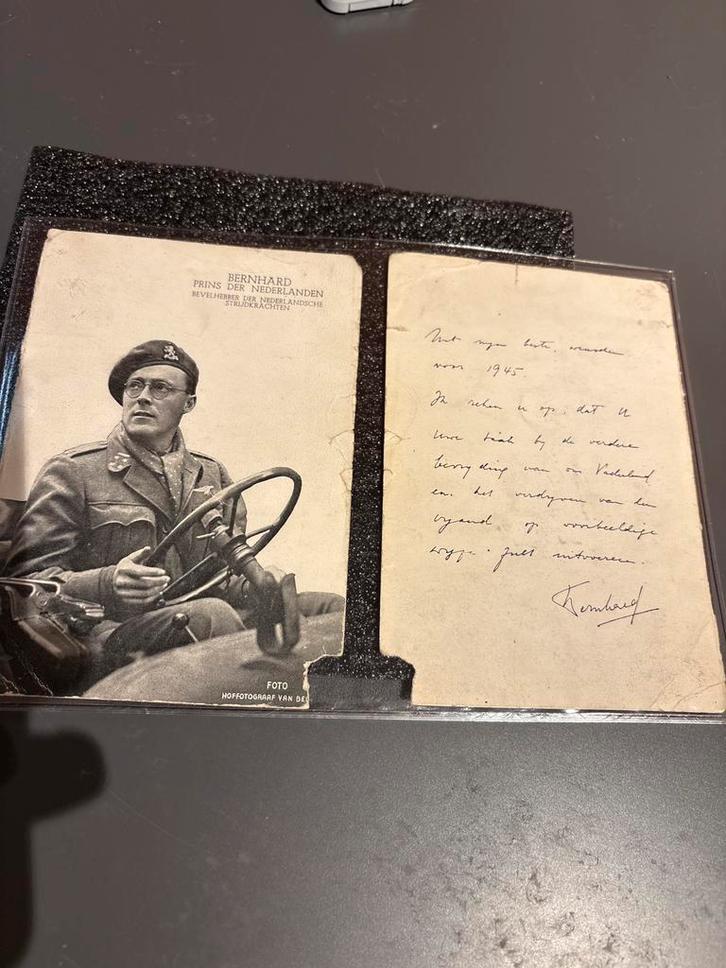 BERNHARD
PRINS DER NEDERLANDEN
BEVELHEBBER DER NEDERLANDSCHE
STRIJDKRACHTEN
FOTO
HOFFOTOGRAAF VAN DE
Met mijn beste wenschen
voor 1945.
Ik reken er op, dat U
Uwe taak bij de verdere
bevrijding van ons Vaderland
en het verdrijven van den
vijand op voorbeeldige
wijze zult uitvoeren.
Bernhard